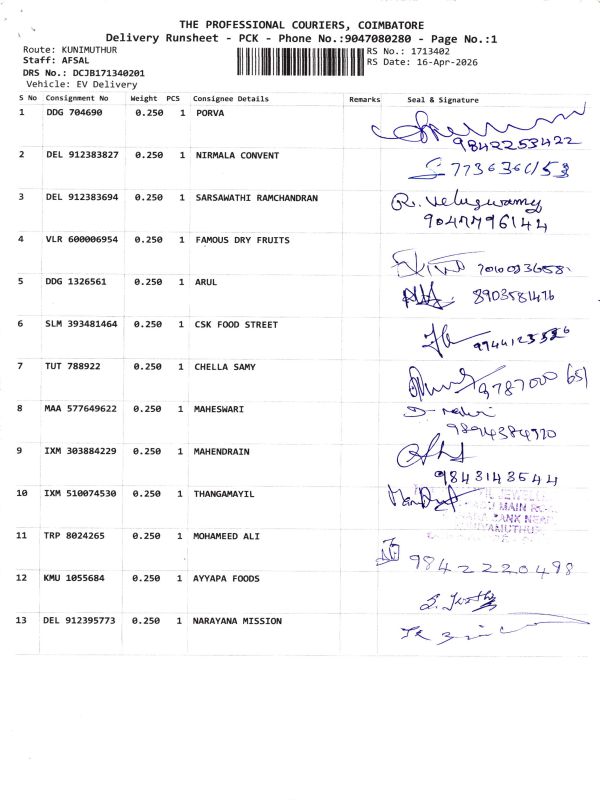 THE PROFESSIONAL COURIERS, COIMBATORE
Delivery Runsheet - PCK - Phone No.:9047080280 - Page No.:1
Route: KUNIMUTHUR
Staff: AFSAL
DRS No.: DCJB171340201
Vehicle: EV Delivery
RS No.: 1713402
RS Date: 16-Apr-2026
S No Consignment No Weight PCS Consignee Details Remarks Seal & Signature
1 DDG 704690 0.250 1 PORVA
9842253422
2 DEL 912383827 0.250 1 NIRMALA CONVENT
3 DEL 912383694 0.250 1 SARSAWATHI RAMCHANDRAN R. Veluswamy
9047796144
4 VLR 600006954 0.250 1 FAMOUS DRY FRUITS
5 DDG 1326561 0.250 1 ARUL
8903581476
6 SLM 393481464 0.250 1 CSK FOOD STREET
7 TUT 788922 0.250 1 CHELLA SAMY
9787000 651
8 MAA 577649622 0.250 1 MAHESWARI
9894384920
9 IXM 303884229 0.250 1 MAHENDRAIN
9843143544
10 IXM 510074530 0.250 1 THANGAMAYIL
MAIN
BANK NEAR
11 TRP 8024265 0.250 1 MOHAMEED ALI
9842220498
12 KMU 1055684 0.250 1 AYYAPA FOODS
13 DEL 912395773 0.250 1 NARAYANA MISSION